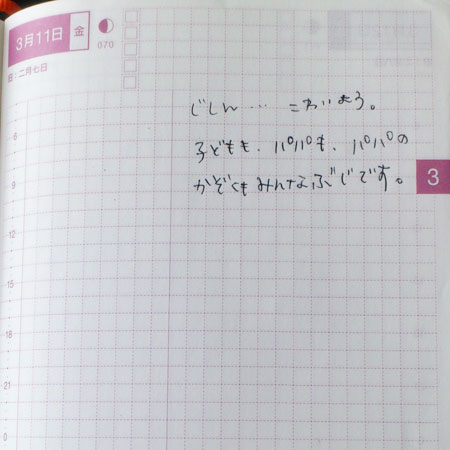 3月11日 金
070
旧:二月七日
じしん… こわいよう。
子どもも、パパも、パパの
かぞくもみんなぶじです。
3
6
9
12
15
18
21
0